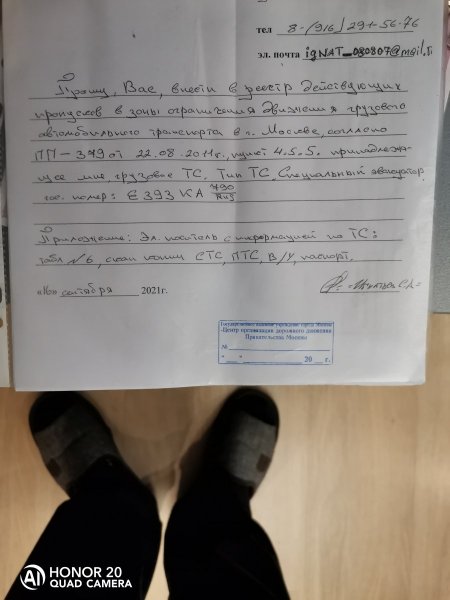 тел 8-(916) 291-56-76
эл. почта ignat_080807@mail.
Прошу, Вас, внести в реестр действующих
пропусков в зоны ограничения движения грузового
автомобильного транспорта в г. Москве, согласно
ПП-379 от 22.08.2011г., пункт 4.5.5. принадлежа-
щее мне, грузовое ТС, Тип ТС, Специальный эвакуатор,
гос. номер: Е 393 КА 790 RUS
Приложение: Эл. носитель с информацией по ТС:
табл №6, скан копии СТС, ПТС, В/У, паспорт.
«16» сентября 2021г.
Государственное казенное учреждение города Москвы
-Центр организации дорожного движения
Правительства Москвы
№
"___" 20 г.
HONOR 20
QUAD CAMERA